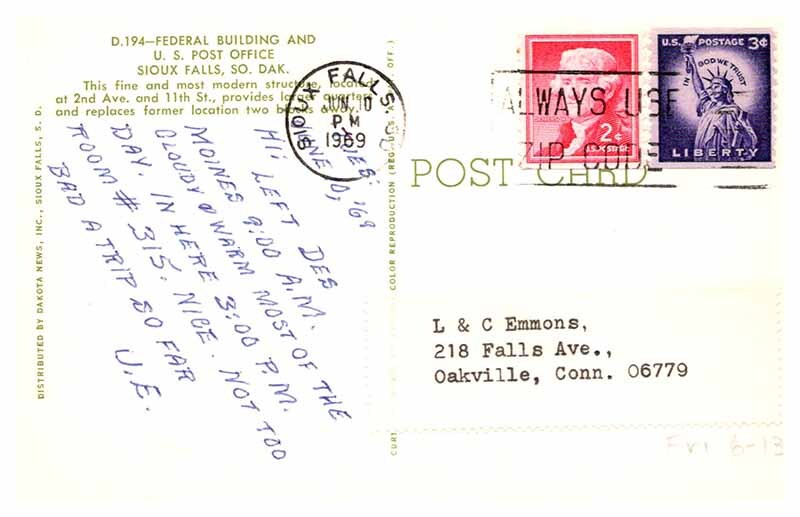 D.194—FEDERAL BUILDING AND
U. S. POST OFFICE
SIOUX FALLS, SO. DAK.
This fine and most modern structure, located
at 2nd Ave. and 11th St., provides larger quarters
and replaces former location two blocks away.
JUNE 10, '69
HI: LEFT DES
MOINES 9:00 A.M.
CLOUDY & WARM MOST OF THE
DAY. IN HERE 3:00 P.M.
ROOM # 315. NICE. NOT TOO
BAD A TRIP SO FAR
U.E.
DISTRIBUTED BY DAKOTA NEWS, INC., SIOUX FALLS, S. D.
COLOR REPRODUCTION OFF.)
SIOUX FALLS
JUN 10
PM
1969
ALWAYS USE
ZIP CODE
2¢
U.S. POSTAGE
U.S. POSTAGE 3¢
IN GOD WE TRUST
LIBERTY
POST CARD
L & C Emmons,
218 Falls Ave.,
Oakville, Conn. 06779
Fri 6-13